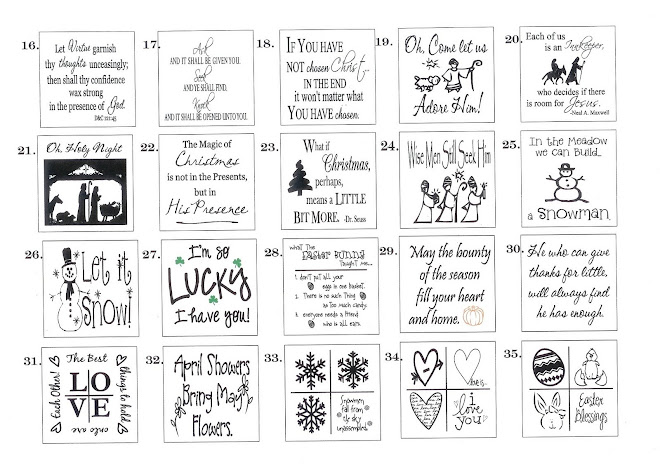 16.
Let Virtue garnish
thy thoughts unceasingly;
then shall thy confidence
wax strong
in the presence of God.
D&C 121:45
17.
Ask
AND IT SHALL BE GIVEN YOU.
Seek
AND YE SHALL FIND.
Knock
AND IT SHALL BE OPENED UNTO YOU.
18.
IF YOU HAVE
NOT chosen Christ
IN THE END
it won't matter what
YOU HAVE chosen.
19.
Oh, Come let us
Adore Him!
20.
Each of us
is an Innkeeper,
who decides if there
is room for Jesus.
-Neal A. Maxwell
21.
Oh, Holy Night
22.
The Magic of
Christmas
is not in the Presents,
but in
His Presence
23.
What if
Christmas,
perhaps,
means a LITTLE
BIT MORE. -Dr. Seuss
24.
Wise Men Still Seek Him
25.
In the Meadow
we can Build...
a Snowman.
26.
Let it
Snow!
27.
I'm so
LUCKY
I have you!
28.
what The
Easter Bunny
Taught me...
1. don't put all your
eggs in one basket.
2. There is no such thing
as too much candy.
3. everyone needs a friend
who is all ears.
29.
May the bounty
of the season
fill your heart
and home.
30.
He who can give
thanks for little,
will always find
he has enough.
31.
The Best
things to hold
onto are
Each Other!
LO
VE
32.
April Showers
Bring May
Flowers.
33.
Snowmen
fall from
the sky
unassembled.
34.
love is...
i
love
you
35.
Easter
Blessings